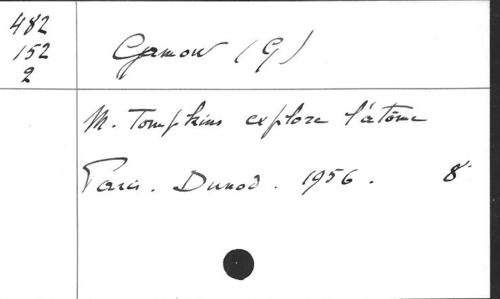 482
152
2
Gamow (G)
M. Tompkins explore l'atôme
Paris. Dunod. 1956. 8°